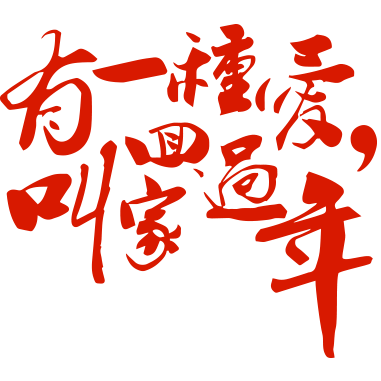 有一種愛，
叫回家過年